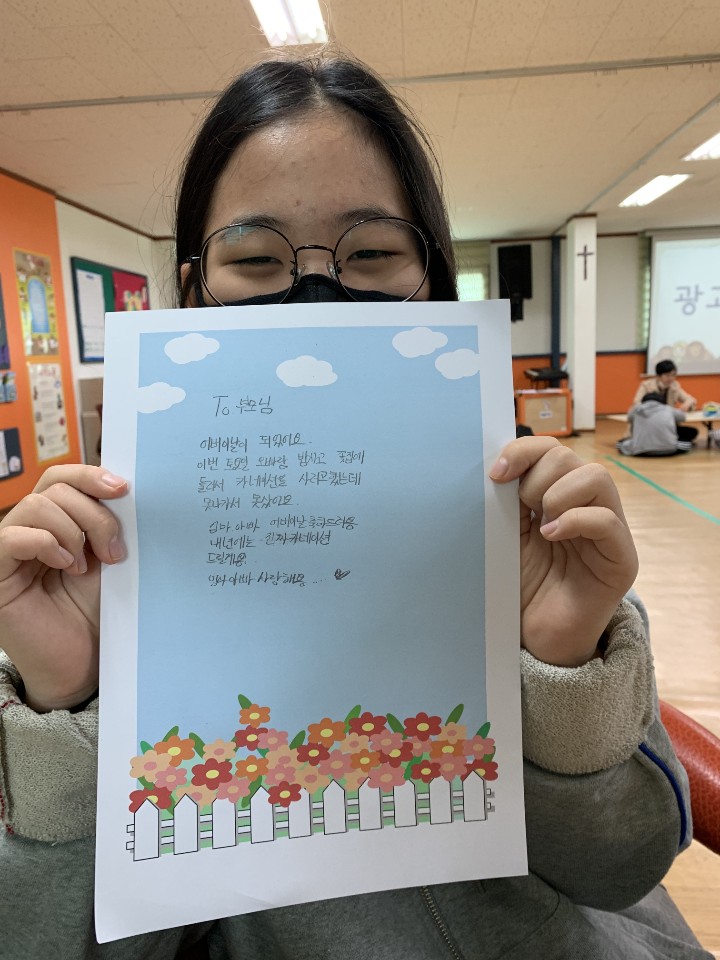 To 부모님
어버이날이 되었어요.
이번 토요일 오빠랑 밥사고 꽃집에
들려서 카네이션을 사려고했는데
못나가서 못샀어요.
엄마 아빠 어버이날 축하드려용
내년에는 진짜카네이션
드릴게용.
엄마아빠 사랑해용...
광고